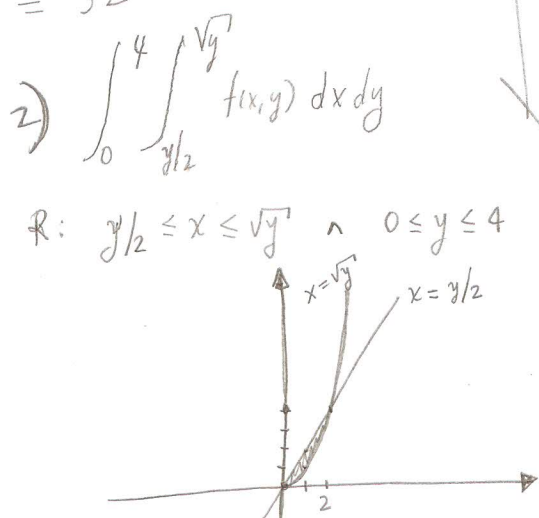 2) ∫₀⁴ ∫_{y/2}^{√y} f(x,y) dx dy
R: y/2 ≤ x ≤ √y ∧ 0 ≤ y ≤ 4
x=√y
x = y/2
2